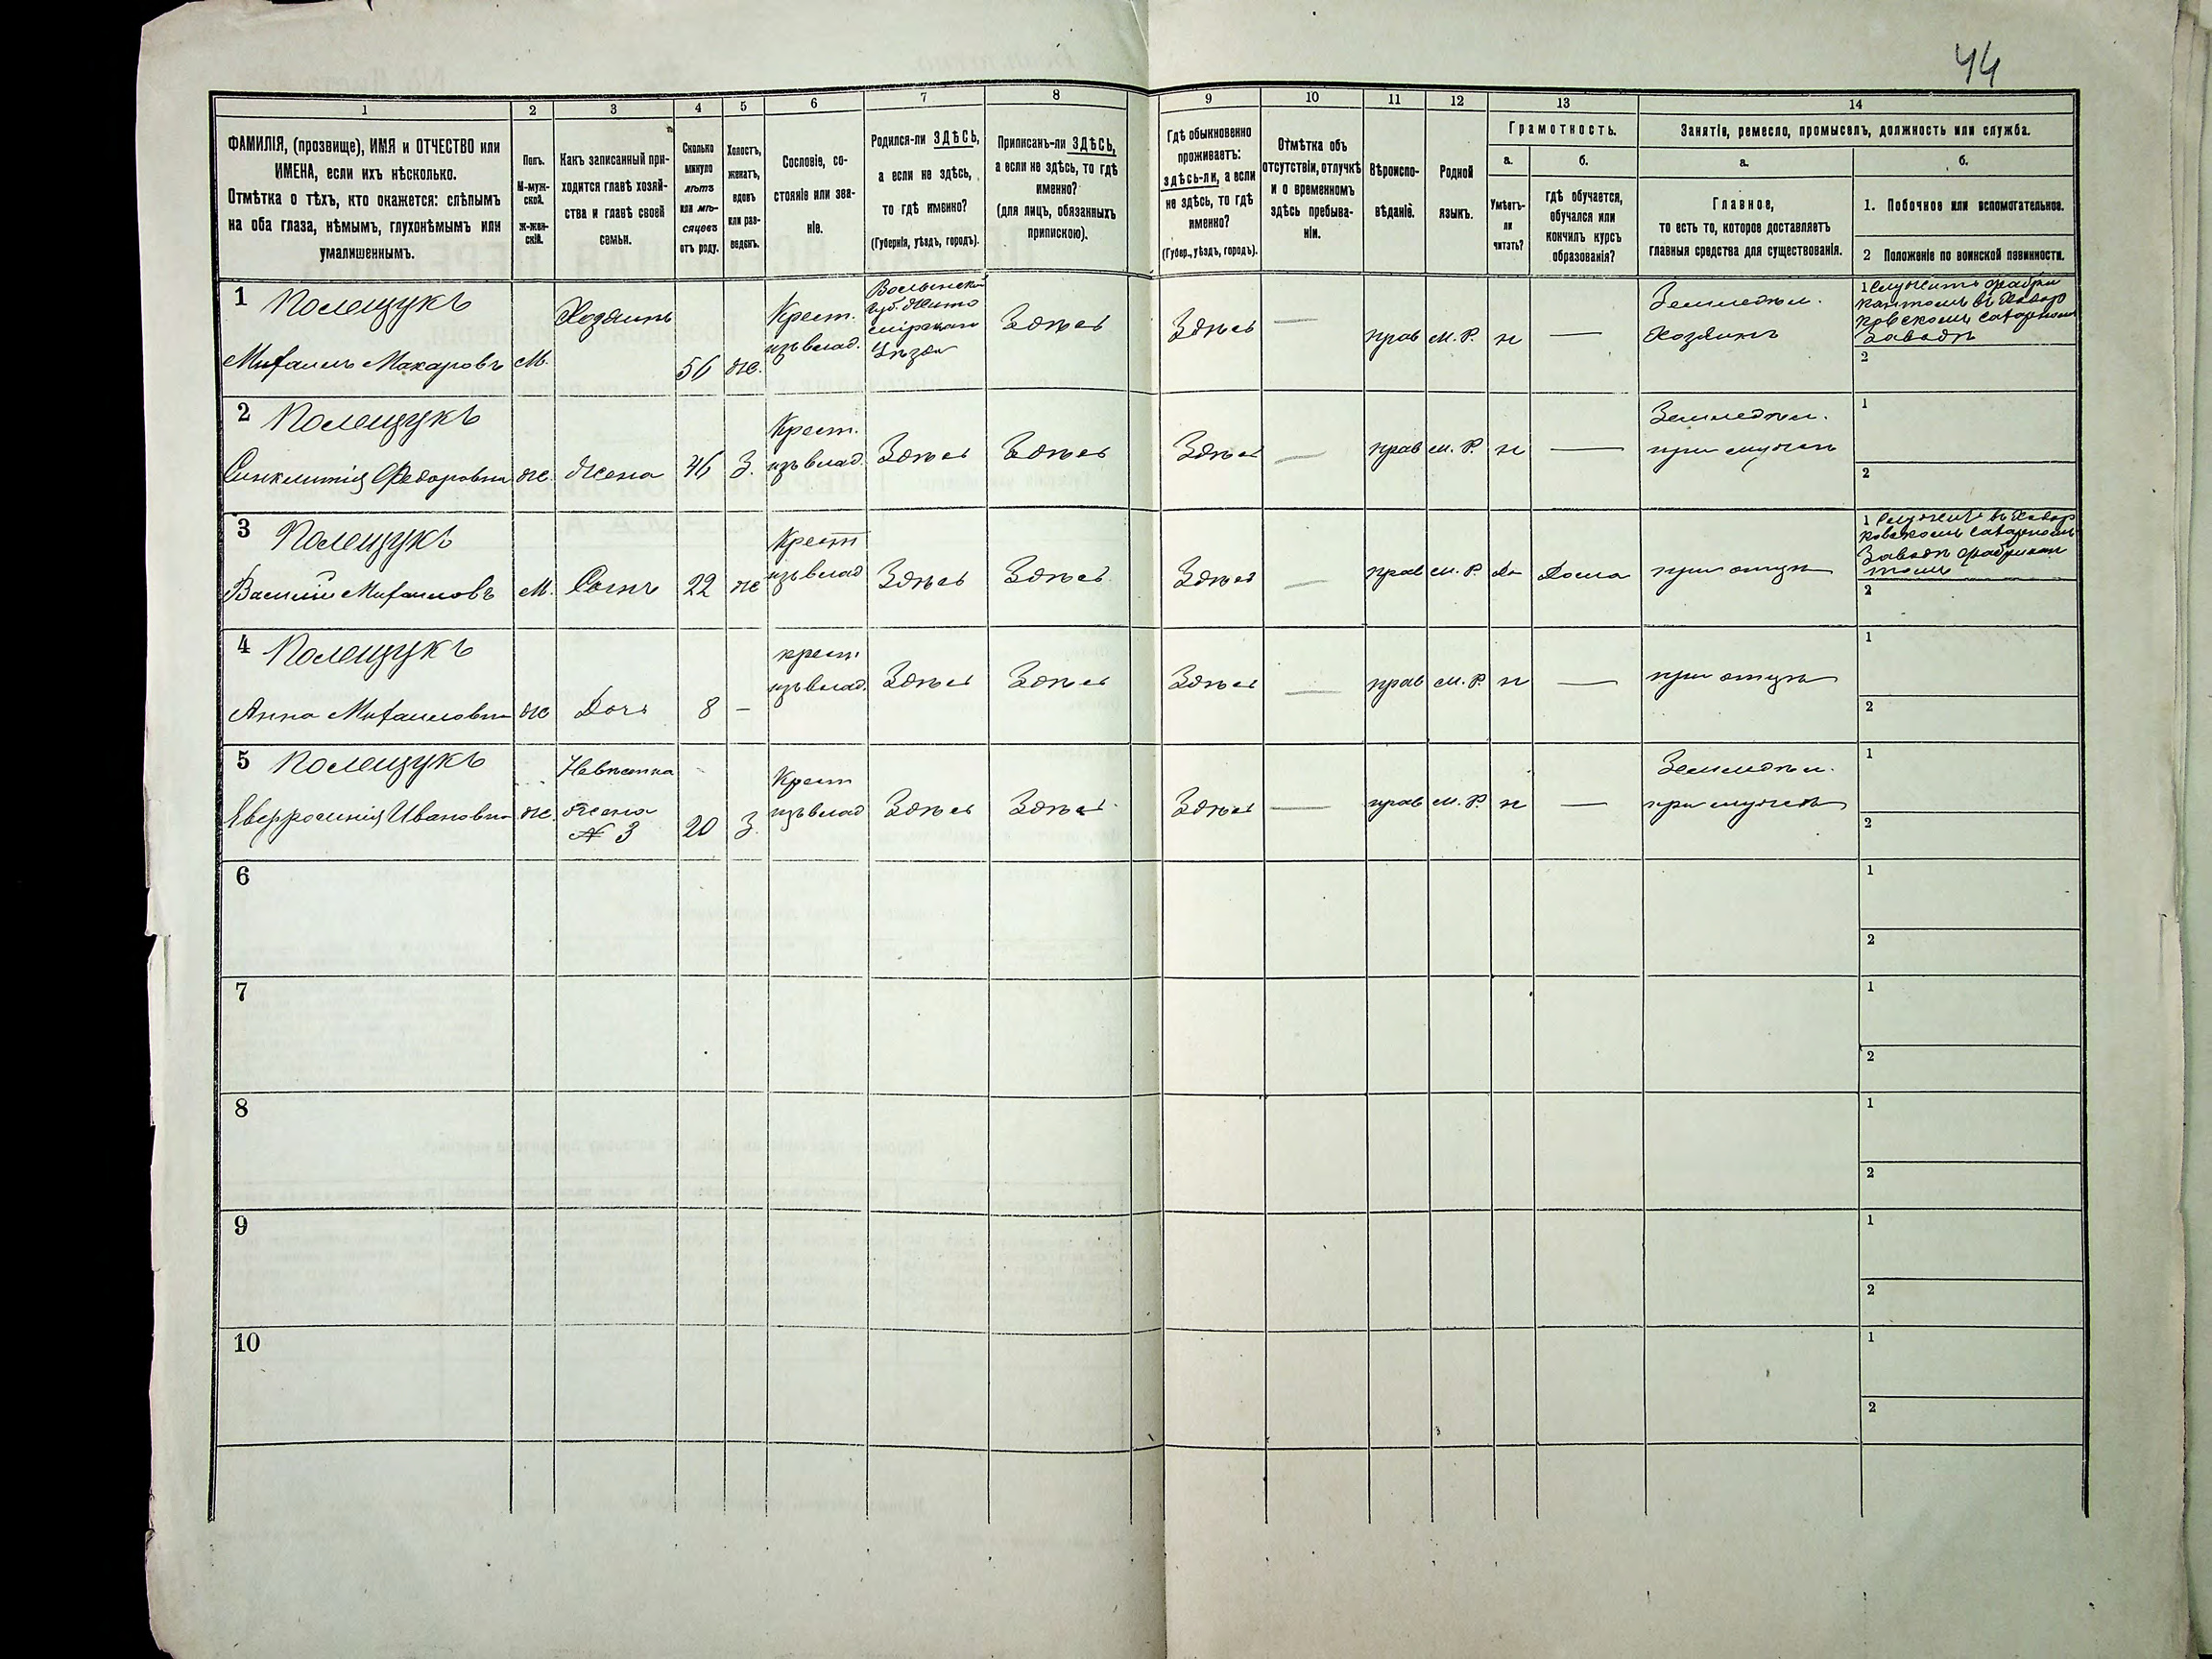 44
1 2 3 4 5 6 7 8 9 10 11 12 13 14
ФАМИЛІЯ, (прозвище), ИМЯ и ОТЧЕСТВО или
ИМЕНА, если ихъ нѣсколько.
Отмѣтка о тѣхъ, кто окажется: слѣпымъ
на оба глаза, нѣмымъ, глухонѣмымъ или
умалишеннымъ.
Полъ.
М-муж-
ской.
ж-жен-
скій.
Какъ записанный при-
ходится главѣ хозяй-
ства и главѣ своей
семьи.
Сколько
минуло
лѣтъ
или мѣ-
сяцевъ
отъ роду.
Холостъ,
женатъ,
вдовъ
или раз-
веденъ.
Сословіе, со-
стояніе или зва-
ніе.
Родился-ли ЗДѢСЬ,
а если не здѣсь,
то гдѣ именно?
(Губернія, уѣздъ, городъ).
Приписанъ-ли ЗДѢСЬ,
а если не здѣсь, то гдѣ
именно?
(для лицъ, обязанныхъ
припискою).
Гдѣ обыкновенно
проживаетъ:
здѣсь-ли, а если
не здѣсь, то гдѣ
именно?
(Губер., уѣздъ, городъ).
Отмѣтка объ
отсутствіи, отлучкѣ
и о временномъ
здѣсь пребыва-
ніи.
Вѣроиспо-
вѣданіе.
Родной
языкъ.
Грамотность.
а.
Умѣетъ-
ли
читать?
б.
гдѣ обучается,
обучался или
кончилъ курсъ
образованія?
Занятіе, ремесло, промыселъ, должность или служба.
а.
Главное,
то есть то, которое доставляетъ
главныя средства для существованія.
б.
1. Побочное или вспомогательное.
2 Положеніе по воинской повинности.
1 Полещукъ
Михаилъ Макаровъ
М.
Хозяинъ
56
же.
Крест.
изъ влад.
Волынской
Губ. Жито
мірскаго
Уѣзда
Здѣсь
Здѣсь
—
прав
м. Р.
н
—
Земледѣл.
Хозяинъ
1 Служитъ фабри
кантомъ въ
сахарномъ
Заводѣ
2
2 Полещукъ
Синклитія Федоровна
же.
Жена
46
З.
Крест.
изъ влад.
Здѣсь
Здѣсь
Здѣсь
—
прав
м. Р.
н
—
Земледѣл.
при мужѣ
1
2
3 Полещукъ
Василій Михаиловъ
М.
Сынъ
22
же
Крест
изъ влад
Здѣсь
Здѣсь
Здѣсь
—
прав
м. Р.
Да
Дома
при отцѣ
1 Служит въ
сахарномъ
Заводѣ фабрикан
томъ
2
4 Полещукъ
Анна Михаиловна
же
Дочь
8
—
крест
изъ влад.
Здѣсь
Здѣсь
Здѣсь
—
прав
м. Р.
н
—
при отцѣ
1
2
5 Полещукъ
Явфросинія Ивановна
же.
Невѣстка
жена
№ 3
20
З.
Крест
изъ влад
Здѣсь
Здѣсь
Здѣсь
—
прав
м. Р.
н
—
Земледѣл.
при мужѣ
1
2
6
1
2
7
1
2
8
1
2
9
1
2
10
1
2